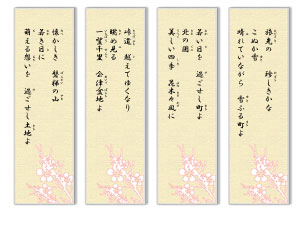 旅先の 珍しきかな
こぬか雪
晴れていながら 雪ふる町よ
若い日を 過ごせし町よ
北の国
美しい四季 花木々風に
峠道 越えてゆくなり
眺め見る
一望千里 会津盆地よ
懐かしき 磐梯の山
若き日に
萌える想いを 過ごせし土地よ